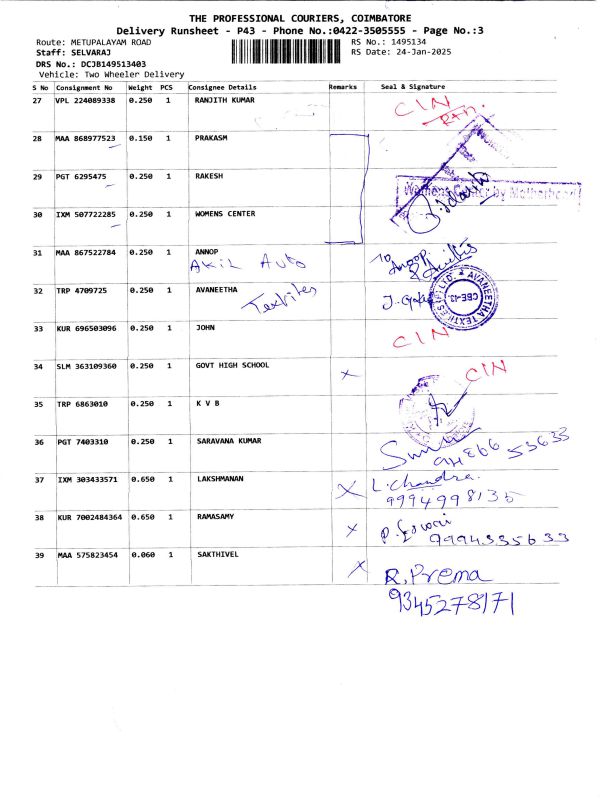 THE PROFESSIONAL COURIERS, COIMBATORE
Delivery Runsheet - P43 - Phone No.:0422-3505555 - Page No.:3
Route: METUPALAYAM ROAD RS No.: 1495134
Staff: SELVARAJ RS Date: 24-Jan-2025
DRS No.: DCJB149513403
Vehicle: Two Wheeler Delivery
S No Consignment No Weight PCS Consignee Details Remarks Seal & Signature
27 VPL 224089338 0.250 1 RANJITH KUMAR CIN
28 MAA 868977523 0.150 1 PRAKASM
29 PGT 6295475 0.250 1 RAKESH
30 IXM 507722285 0.250 1 WOMENS CENTER
31 MAA 867522784 0.250 1 ANNOP
Akil Auto
32 TRP 4709725 0.250 1 AVANEETHA
Textiles
33 KUR 696503096 0.250 1 JOHN CIN
34 SLM 363109360 0.250 1 GOVT HIGH SCHOOL CIN
35 TRP 6863010 0.250 1 K V B
36 PGT 7403310 0.250 1 SARAVANA KUMAR
37 IXM 303433571 0.650 1 LAKSHMANAN L. Chandra.
9994998135
38 KUR 7002484364 0.650 1 RAMASAMY
9994335633
39 MAA 575823454 0.060 1 SAKTHIVEL R. Prema
9345278171